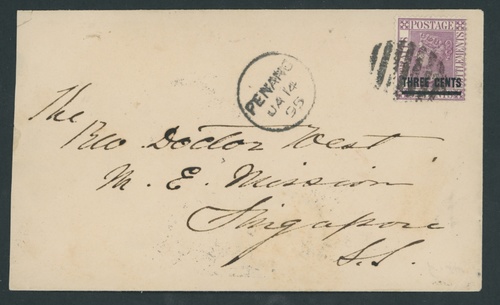 POSTAGE
THREE CENTS
PENANG
JA 14
95
The
Rev Doctor West
M. E. Mission
Singapore
S.S.